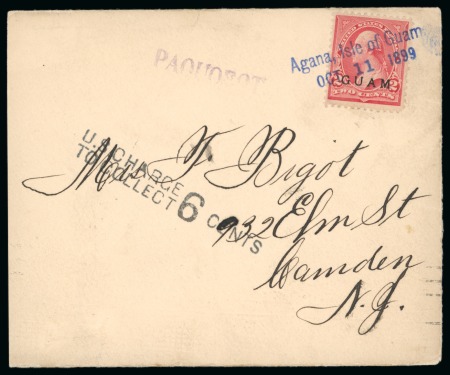 Agana, Isle of Guam
OCT 11 1899
GUAM
2
TWO CENTS
PAQUOBOT
U.S. CHARGE
TO COLLECT 6 CENTS
Mrs T Bigot
932 Elm St
Camden
N.J.